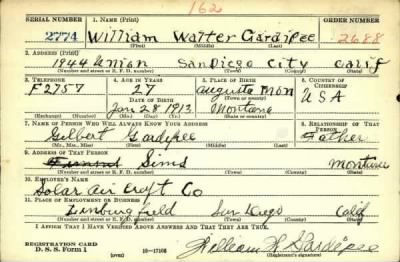 162
SERIAL NUMBER 1. NAME (Print) ORDER NUMBER
2774 William Walter Gardipee 2688
(First) (Middle) (Last)
2. ADDRESS (Print)
1944 Union San Diego City Calif
(Number and street or R. F. D. number) (Town) (County) (State)
3. TELEPHONE 4. AGE IN YEARS 5. PLACE OF BIRTH 6. COUNTRY OF CITIZENSHIP
F2757 27 Augusta Mon USA
DATE OF BIRTH (Town or county)
Jan 28 1913 Montana
(Exchange) (Number) (Mo.) (Day) (Yr.) (State or country)
7. NAME OF PERSON WHO WILL ALWAYS KNOW YOUR ADDRESS 8. RELATIONSHIP OF THAT PERSON
Gilbert Gardipee Father
(Mr., Mrs., Miss) (First) (Middle) (Last)
9. ADDRESS OF THAT PERSON
Sims Montana
(Number and street or R. F. D. number) (Town) (County) (State)
10. EMPLOYER'S NAME
Solar Air Craft Co
11. PLACE OF EMPLOYMENT OR BUSINESS
Linburg field San Diego Calif
(Number and street or R. F. D. number) (Town) (County) (State)
I AFFIRM THAT I HAVE VERIFIED ABOVE ANSWERS AND THAT THEY ARE TRUE.
REGISTRATION CARD
D. S. S. Form 1 16-17105 William W Gardipee
(Registrant's signature)